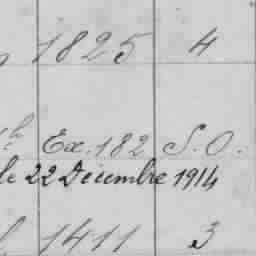 1825 4
Ex. 182 S. O.
le 22 Décembre 1914
1411 3